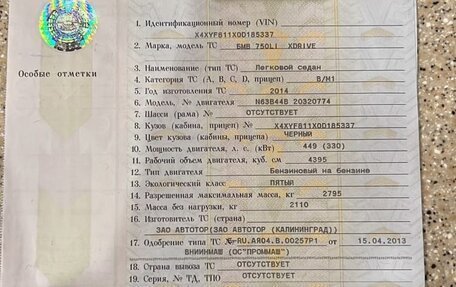 1. Идентификационный номер (VIN)
X4XYF811X0D185337
2. Марка, модель ТС БМВ 750LI XDRIVE
3. Наименование (тип ТС) Легковой седан
Особые отметки
4. Категория ТС (А, В, С, D, прицеп) В/М1
5. Год изготовления ТС 2014
6. Модель, № двигателя N63B44B 20320774
7. Шасси (рама) № ОТСУТСТВУЕТ
8. Кузов (кабина, прицеп) № X4XYF811X0D185337
9. Цвет кузова (кабины, прицепа) ЧЕРНЫЙ
10. Мощность двигателя, л. с. (кВт) 449 (330)
11. Рабочий объем двигателя, куб. см 4395
12. Тип двигателя Бензиновый на бензине
13. Экологический класс ПЯТЫЙ
14. Разрешенная максимальная масса, кг 2795
15. Масса без нагрузки, кг 2110
16. Изготовитель ТС (страна)
ЗАО АВТОТОР(ЗАО АВТОТОР (КАЛИНИНГРАД))
17. Одобрение типа ТС № RU.AR04.B.00257P1 от 15.04.2013
ВНИИНМАШ (ОС"ПРОММАШ")
18. Страна вывоза ТС ОТСУТСТВУЕТ
19. Серия, № ТД, ТПО ОТСУТСТВУЕТ